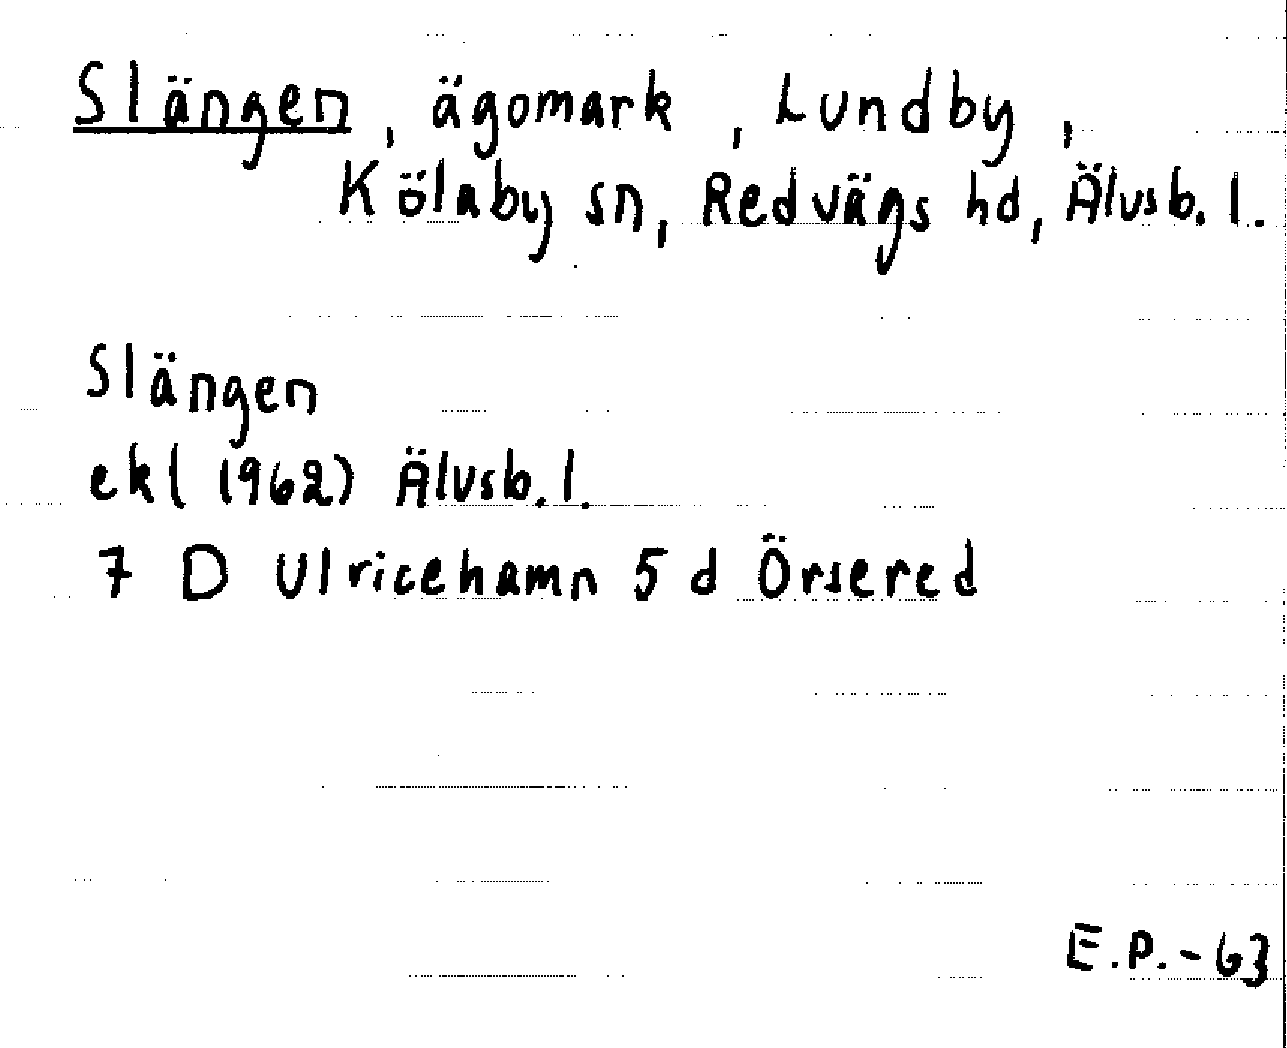 Slängen, ägomark, Lundby,
Kölaby sn, Redvägs hd, Älvsb. l.
Slängen
ekl (1962) Älvsb. l.
7 D Ulricehamn 5 d Örsered
E.P.-63